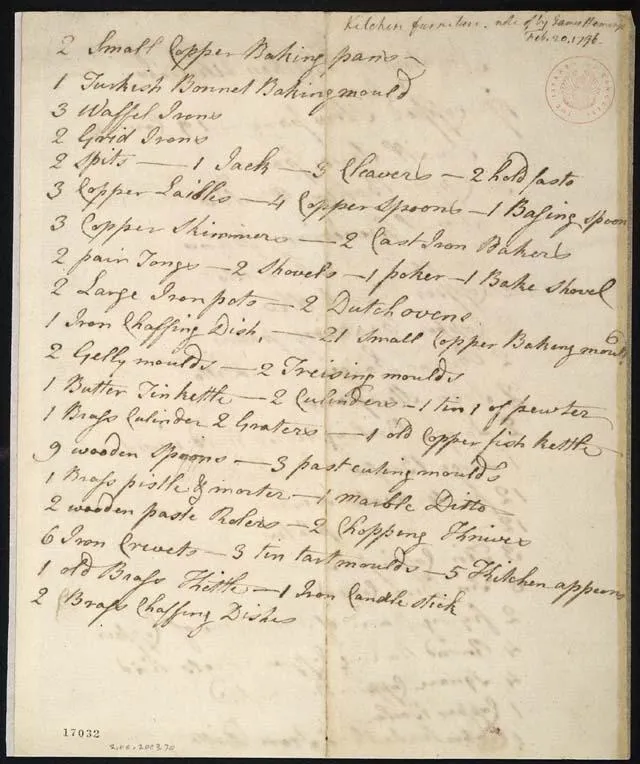 Kitchen furniture. note of by James Hemings
Feb. 20. 1796.
2 Small Copper Baking pans
1 Turkish Bonnet Baking mould
3 Waffel Irons
2 Grid Irons
2 Spits — 1 Jack — 3 Cleavers — 2 hold fasts
3 Copper Laidles — 4 Copper Spoons — 1 Basing spoon
3 Copper Skimmers — 2 Cast Iron Bakers
2 pair Tongs — 2 Shovels — 1 poker — 1 Bake shovel
2 Large Iron pots — 2 Dutch ovens
1 Iron Chaffing Dish, — 21 Small Copper Baking moulds
2 Gelly moulds — 2 Freising moulds
1 Butter Tin kettle — 2 Culinders — 1 tin 1 of pewter
1 Brass Culinder 2 Graters — 1 old Copper fish kettle
9 wooden Spoons — 3 past cuting moulds
1 Brass pistle & morter — 1 marble Ditto
2 wooden paste Rolers — 2 Chopping Knives
6 Iron Crevets — 3 tin tart moulds — 5 Kitchen apperns
1 old Brass Kettle — 1 Iron Candle stick
2 Brass Chaffing Dishes
17032